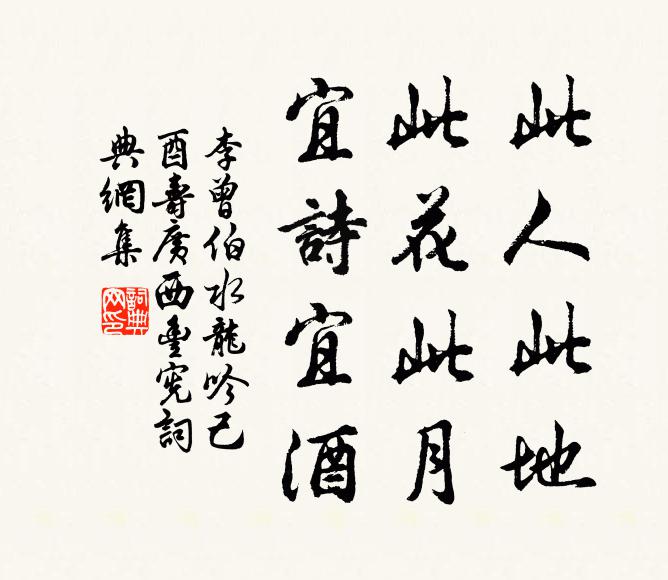 此人此地
此花此月
宜詩宜酒
李曾伯水龍吟己
酉壽廣西豐宪詞
典網集
詞典网印